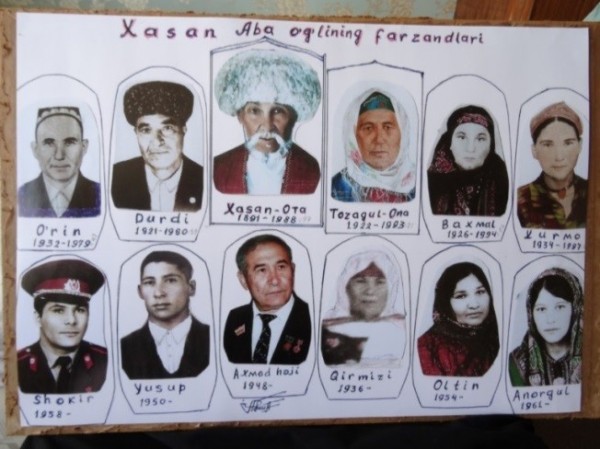 Xasan Aba og'lining farzandlari
O'rin
1932-1979
Durdi
1921-1980
Xasan-Ота
1891-1988
Tozagul-Ona
1922-1983
Baxmal
1926-1994
Xurmo
Shokir
1958-
Yusup
1950-
Axmed hoji
1948-
Qirmizi
1936-
Oltin
1954-
Anorgul
1961-